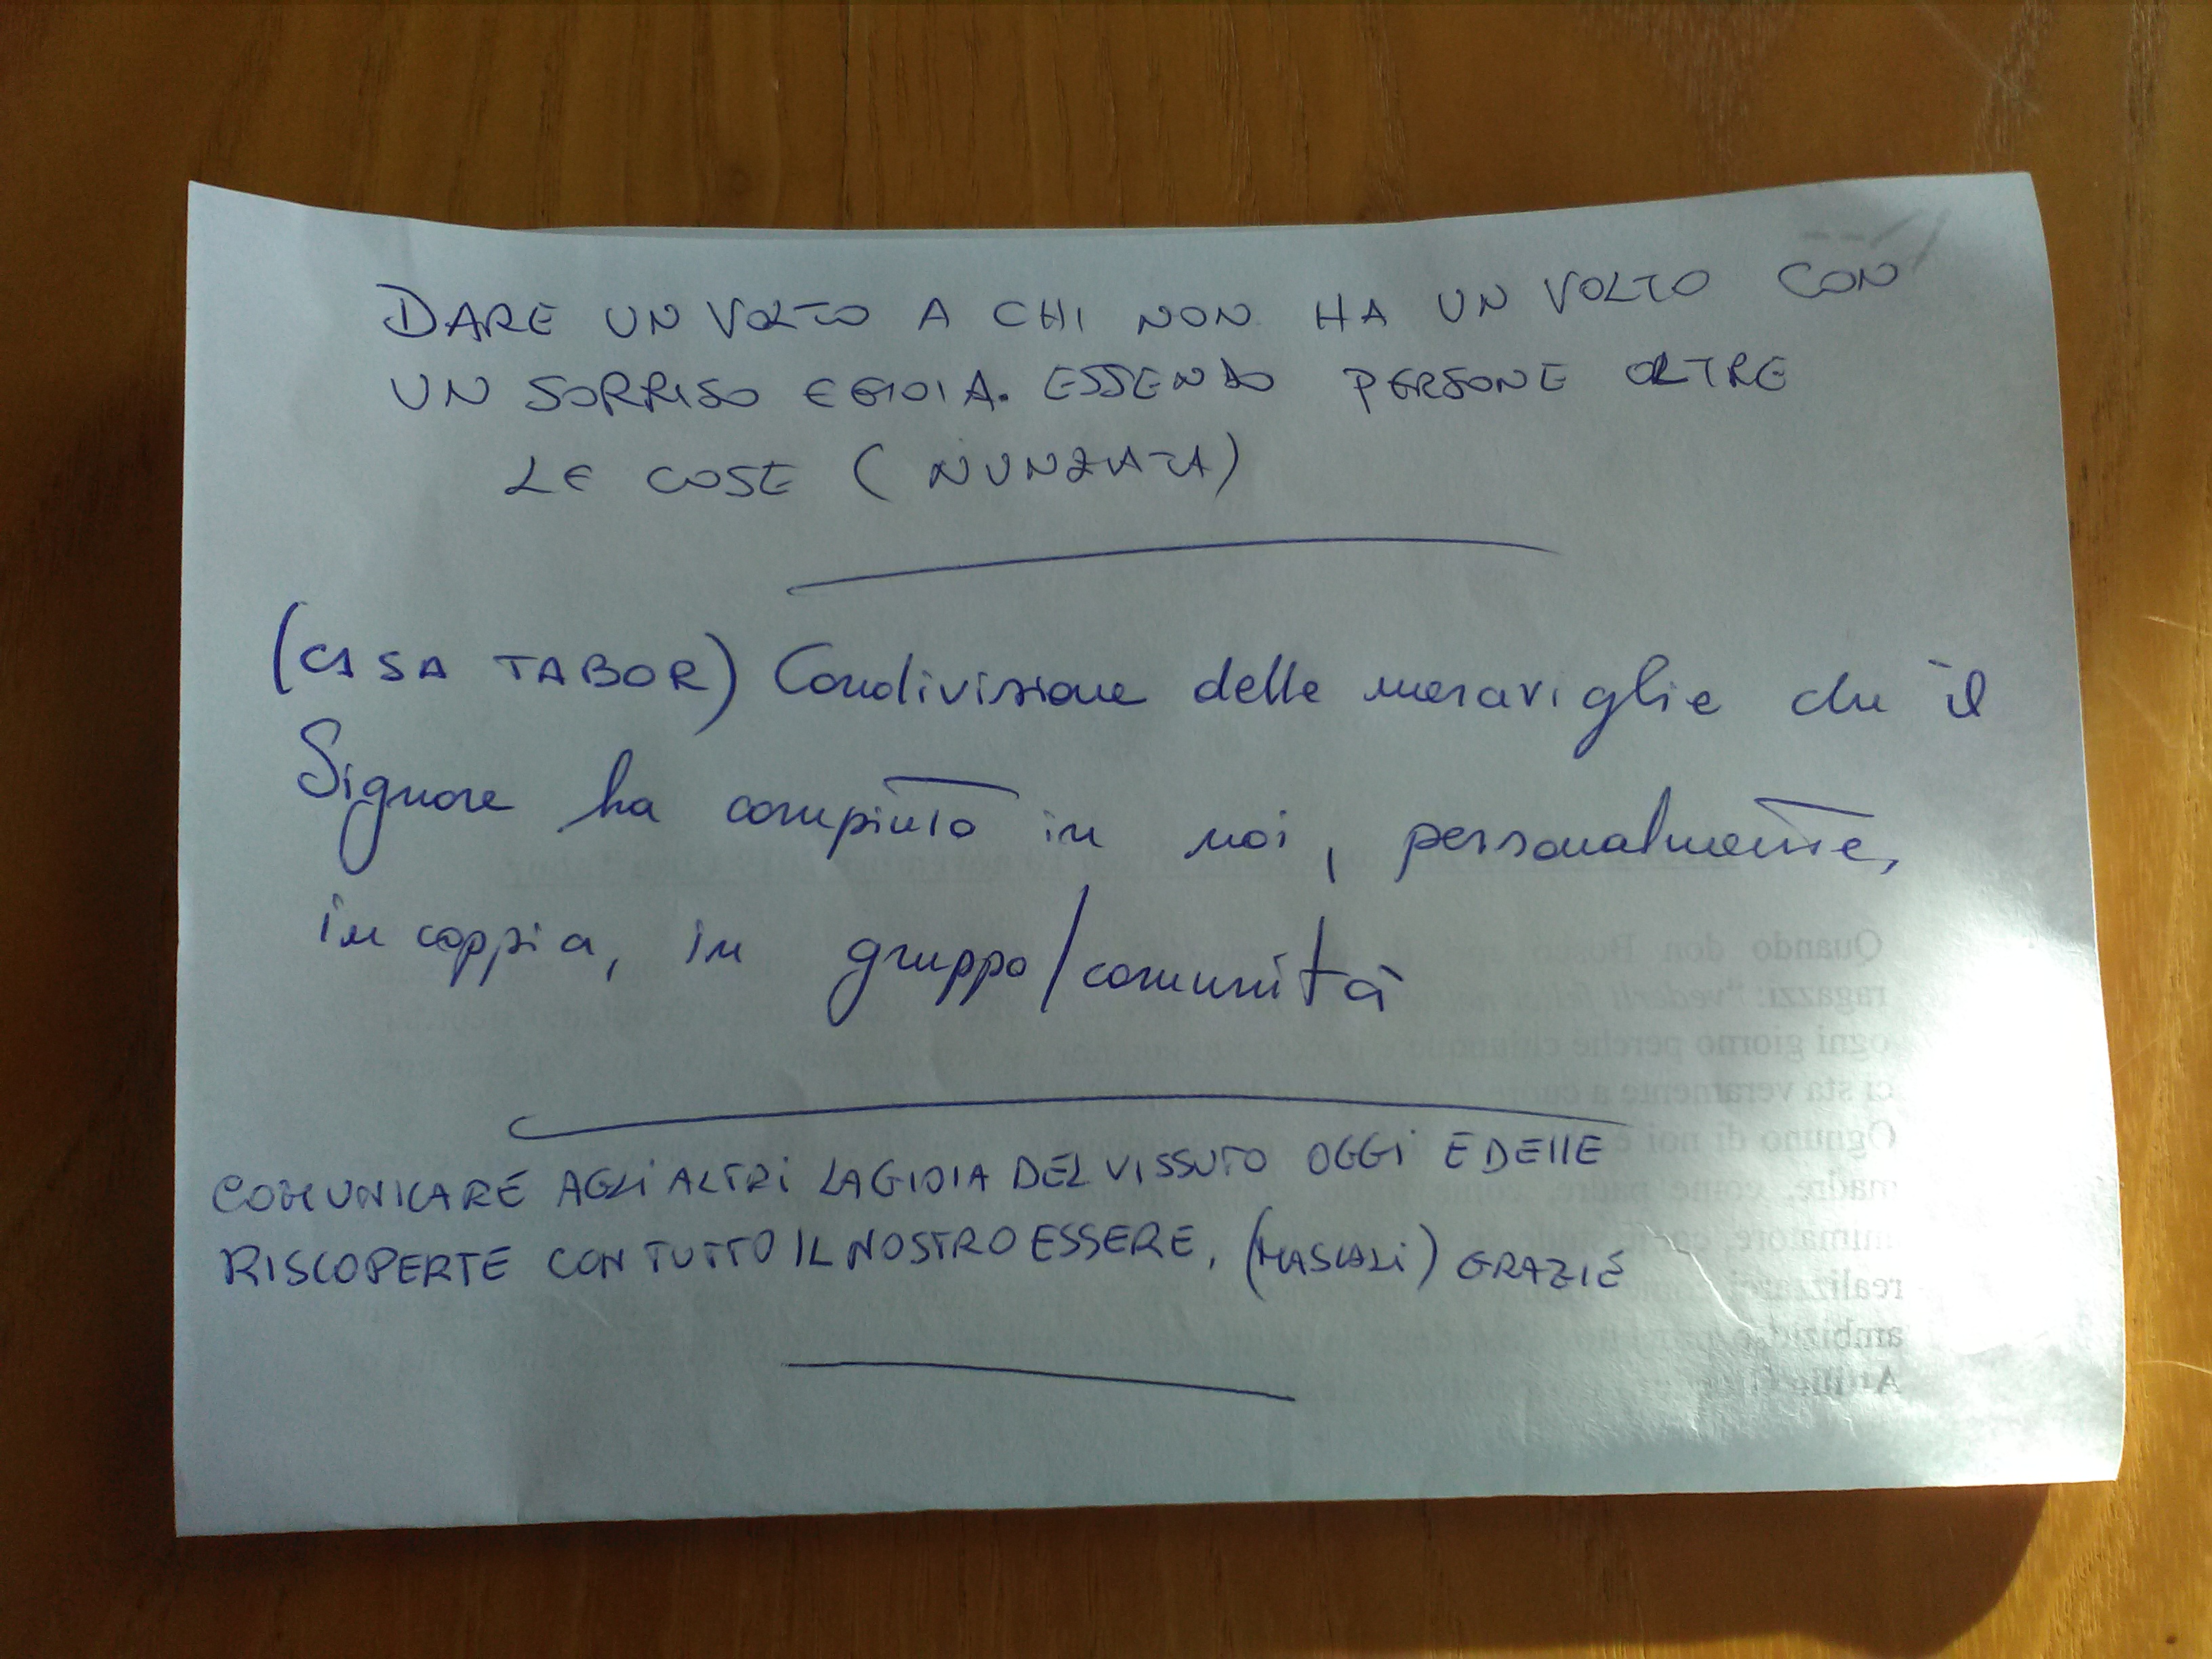 DARE UN VOLTO A CHI NON HA UN VOLTO CON
UN SORRISO E GIOIA. ESSENDO PERSONE OLTRE
LE COSE (NUNZIATA)
(CASA TABOR) Condivisione delle meraviglie che il
Signore ha compiuto in noi, personalmente,
in coppia, in gruppo/comunità
COMUNICARE AGLI ALTRI LA GIOIA DEL VISSUTO OGGI E DELLE
RISCOPERTE CON TUTTO IL NOSTRO ESSERE, (MASCALI) GRAZIE
Quando don
ragazzi: "vederli
ogni giorno perché
ci sta veramente a cuore
Ognuno di noi è
madre, come padre, come